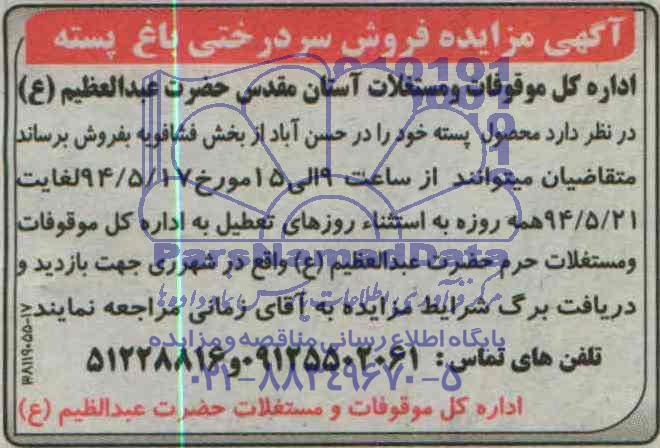 آگهی مزایده فروش سردرختی باغ پسته
اداره کل موقوفات ومستغلات آستان مقدس حضرت عبدالعظیم (ع)
در نظر دارد محصول پسته خود را در حسن آباد از بخش فشافویه بفروش برساند
متقاضیان میتوانند از ساعت ۹الی۱۵مورخ۹۴/۵/۱۷لغایت
۹۴/۵/۲۱همه روزه به استثناء روزهای تعطیل به اداره کل موقوفات
ومستغلات حرم حضرت عبدالعظیم (ع) واقع در شهرری جهت بازدید و
دریافت برگ شرایط مزایده به آقای زمانی مراجعه نمایند
تلفن های تماس: ۰۹۱۲۵۵۰۲۰۶۱و۵۱۲۲۸۸۱۶
اداره کل موقوفات و مستغلات حضرت عبدالظیم (ع)
ParsNamadData
پایگاه اطلاع رسانی مناقصه و مزایده
۰۲۱-۸۸۳۴۹۶۷۰-۵